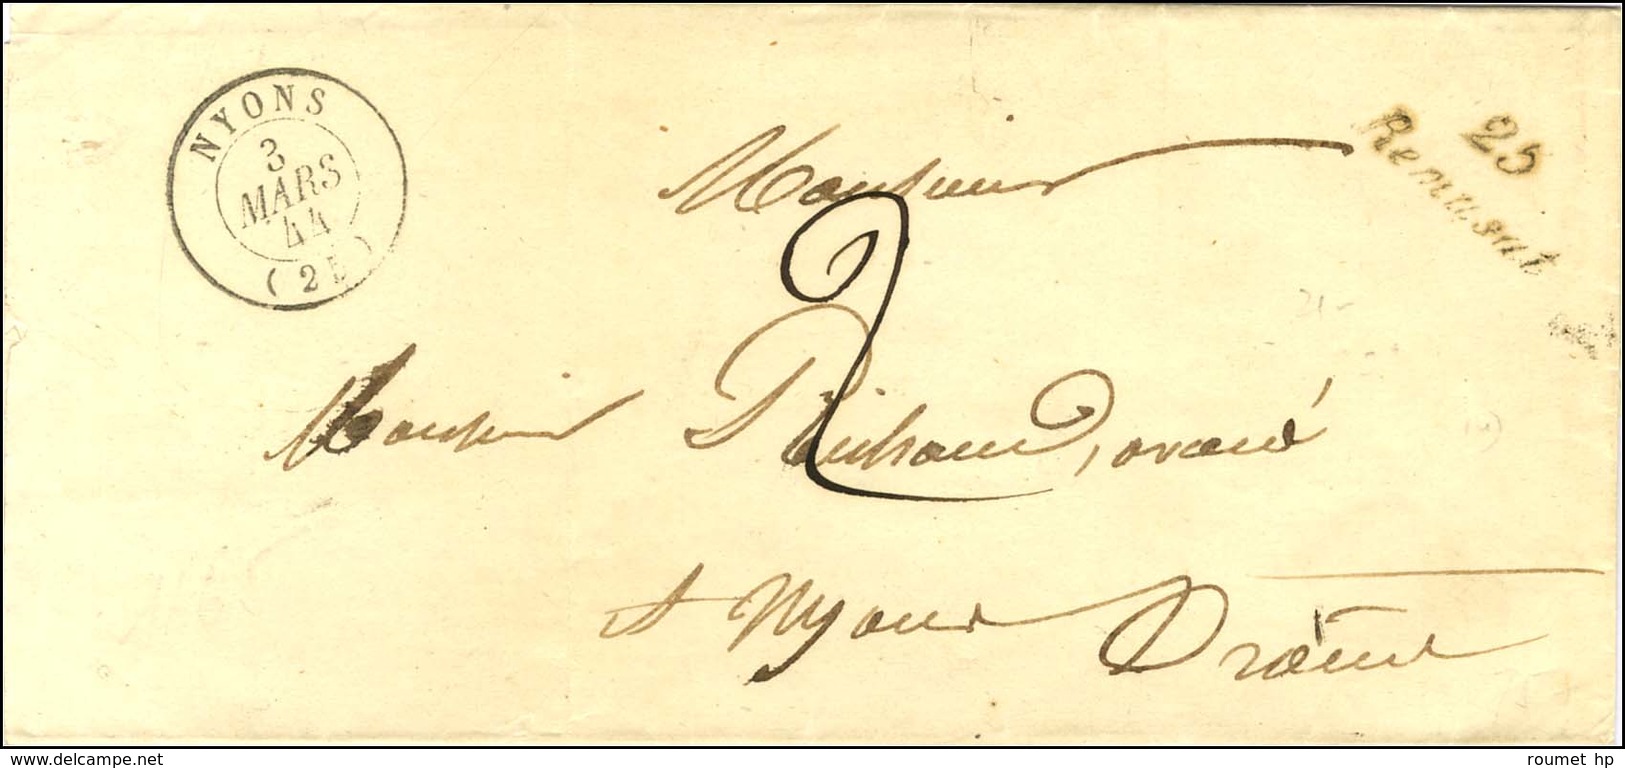 NYONS
3
MARS
44
(25)
25
Remusat
Monsieur
2
Monsieur Richaud, avoué
à Nyons Drôme
roumet hp